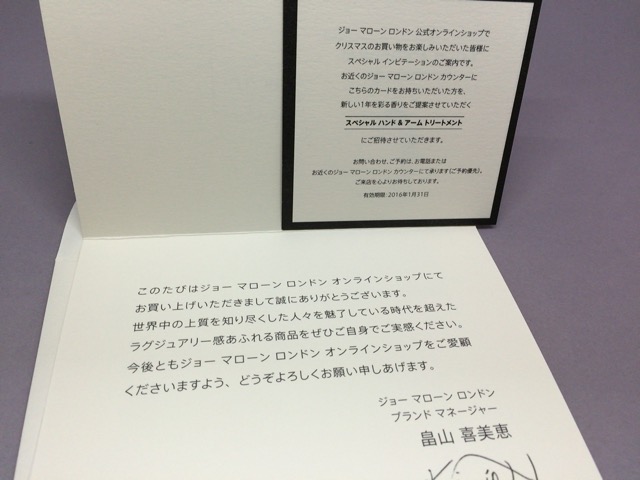 ジョー マローン ロンドン 公式オンラインショップで
クリスマスのお買い物をお楽しみいただいた皆様に
スペシャル インビテーションのご案内です。
お近くのジョー マローン ロンドン カウンターに
こちらのカードをお持ちいただいた方を、
新しい1年を彩る香りをご提案させていただく
スペシャル ハンド & アーム トリートメント
にご招待させていただきます。
お問い合わせ、ご予約は、お電話または
お近くのジョー マローン ロンドン カウンターにて承ります(ご予約優先)。
ご来店を心よりお待ちしております。
有効期限: 2016年1月31日
このたびはジョー マローン ロンドン オンラインショップにて
お買い上げいただきまして誠にありがとうございます。
世界中の上質を知り尽くした人々を魅了している時代を超えた
ラグジュアリー感あふれる商品をぜひご自身でご実感ください。
今後ともジョー マローン ロンドン オンラインショップをご愛顧
くださいますよう、どうぞよろしくお願い申しあげます。
ジョー マローン ロンドン
ブランド マネージャー
畠山 喜美恵